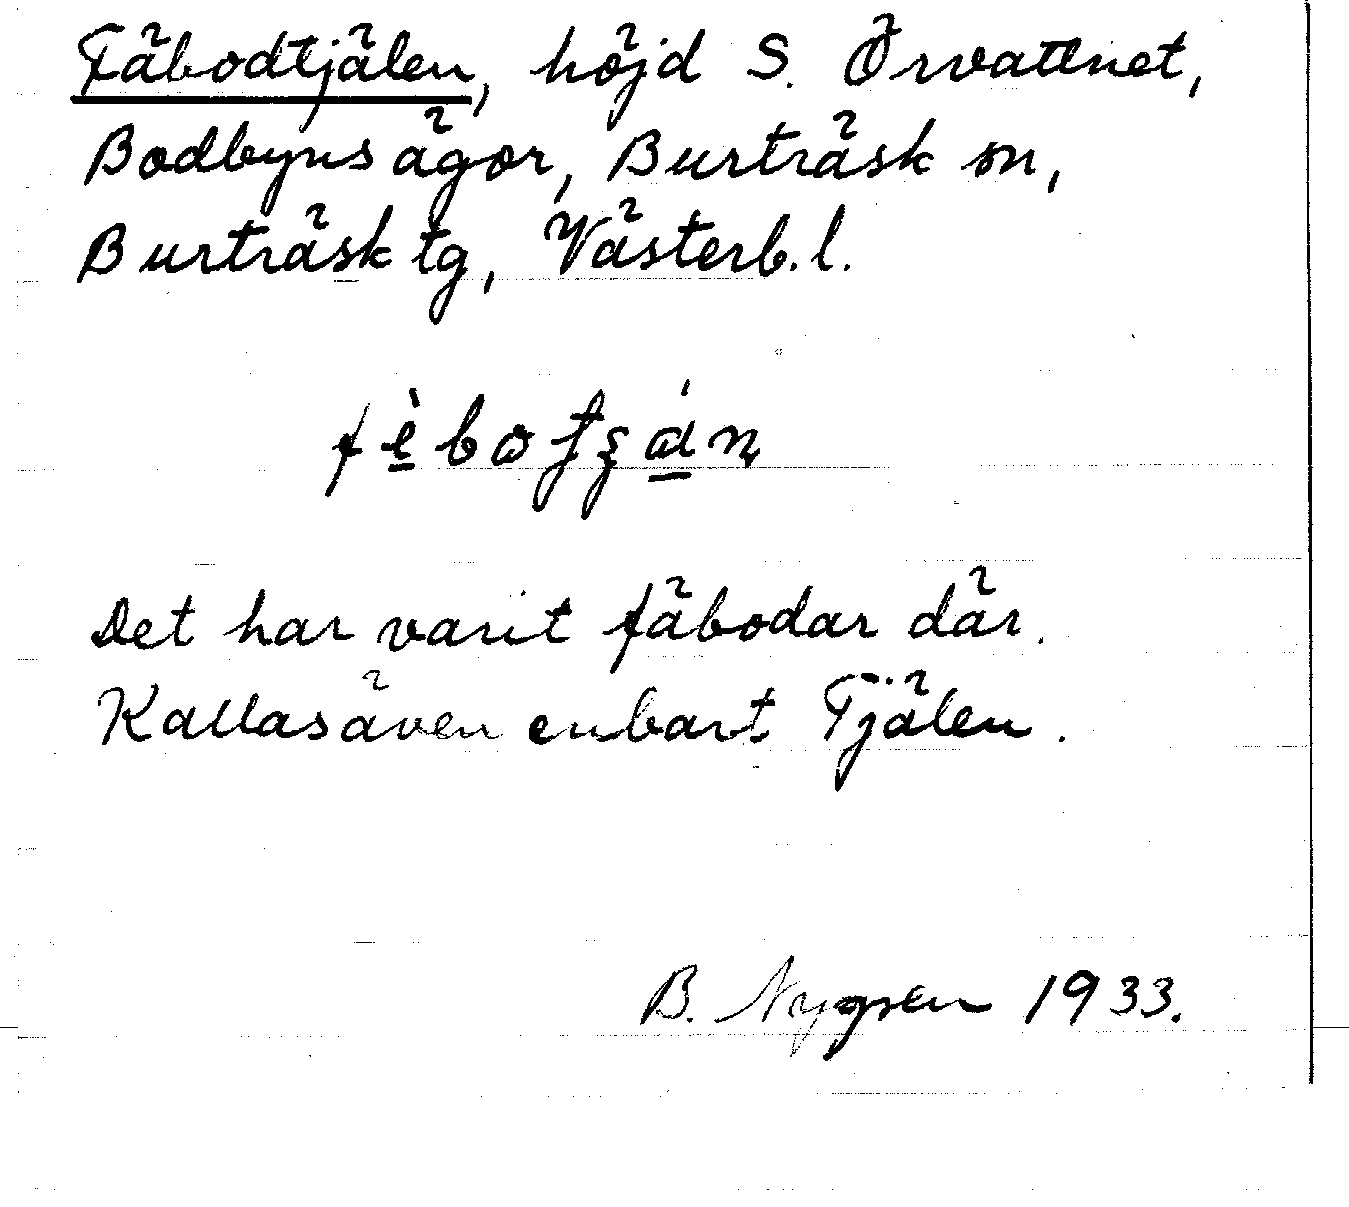 Fäbodtjälen, höjd S. Örvattnet,
Bodbyns ägor, Burträsk sn,
Burträsk tg, Västerb. l.
Det har varit fäbodar där.
Kallas även enbart Tjälen.
B. Nygren 1933.